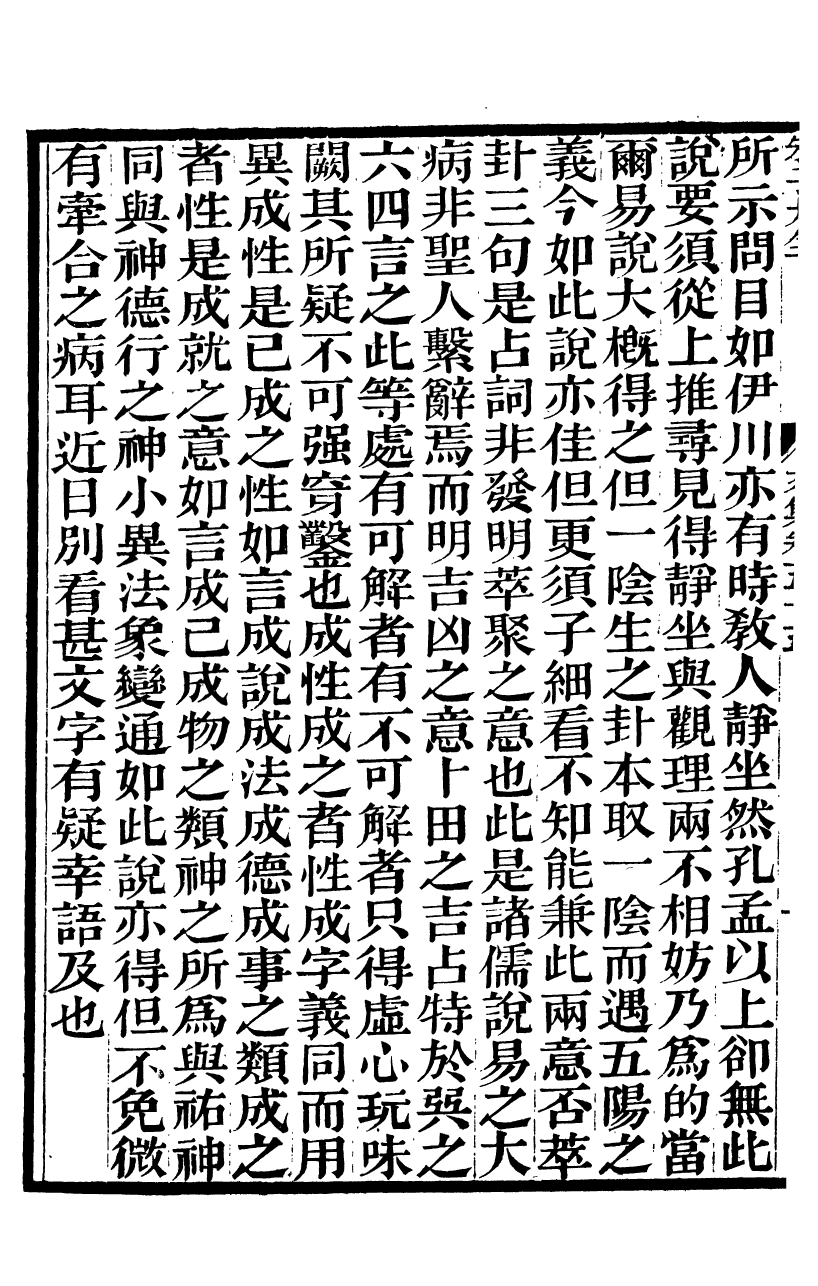 所示問目如伊川亦有時敎人靜坐然孔孟以上卻無此
說要須從上推尋見得靜坐與觀理兩不相妨乃爲的當
爾易說大槪得之但一陰生之卦本取一陰而遇五陽之
義今如此說亦佳但更須子細看不知能兼此兩意否萃
卦三句是占詞非發明萃聚之意也此是諸儒說易之大
病非聖人繫辭焉而明吉凶之意卜田之吉占特於巽之
六四言之此等處有可解者有不可解者只得虛心玩味
闕其所疑不可强穿鑿也成性成之者性成字義同而用
異成性是已成之性如言成說成法成德成事之類成之
者性是成就之意如言成己成物之類神之所爲與祐神
同與神德行之神小異法象變通如此說亦得但不免微
有牽合之病耳近日別看甚文字有疑幸語及也